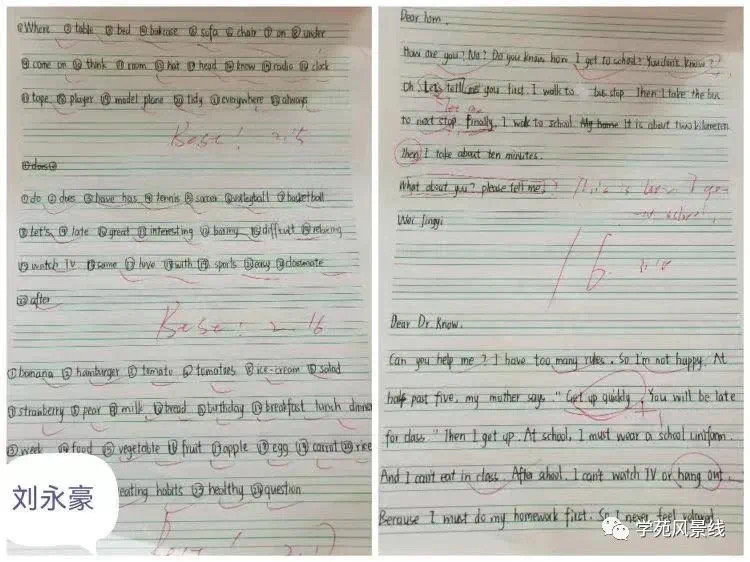 ①Where ②table ③bed ④bookcase ⑤sofa ⑥chair ⑦on ⑧under
⑨come on ⑩think ⑪room ⑫hat ⑬head ⑭know ⑮radio ⑯clock
⑰tape ⑱player ⑲model plane ⑳tidy ㉑everywhere ㉒always
Best! 2.15
①do ②does ③have has ④tennis ⑤soccer ⑥volleyball ⑦basketball
⑧Let's ⑨late ⑩great ⑪interesting ⑫boring ⑬difficult ⑭relaxing
⑮watch TV ⑯same ⑰love ⑱with ⑲sports ⑳easy ㉑classmate
㉒after
Best! 2.16
①banana ②hamburger ③tomato ④tomatoes ⑤ice-cream ⑥salad
strawberry ⑧pear ⑨milk ⑩bread ⑪birthday ⑫breakfast lunch dinner
week ⑭food ⑮vegetable ⑯fruit ⑰apple ⑱egg ⑲carrot ⑳rice
eating habits ㉓healthy ㉔question
刘永豪
Dear Tom,
How are you? No? Do you know how I get to school? You don't know?
Oh Let's tell me you first. I walk to bus stop Then I take the bus
let me
to next stop finally. I walk to school. My home It is about two kilometers
Then I take about ten minutes.
What about you? please tell me.
This is how I get
school.
Wei Jingyi
16
Dear Dr. Know.
Can you help me? I have too many rules. So I'm not happy. At
half past five, my mother says. "Get up quickly. You will be late
for class." Then I get up. At school, I must wear a school uniform.
And I can't eat in class. After shool. I can't watch TV or hang out.
Because I must do my homework first. So I never feel
学苑风景线